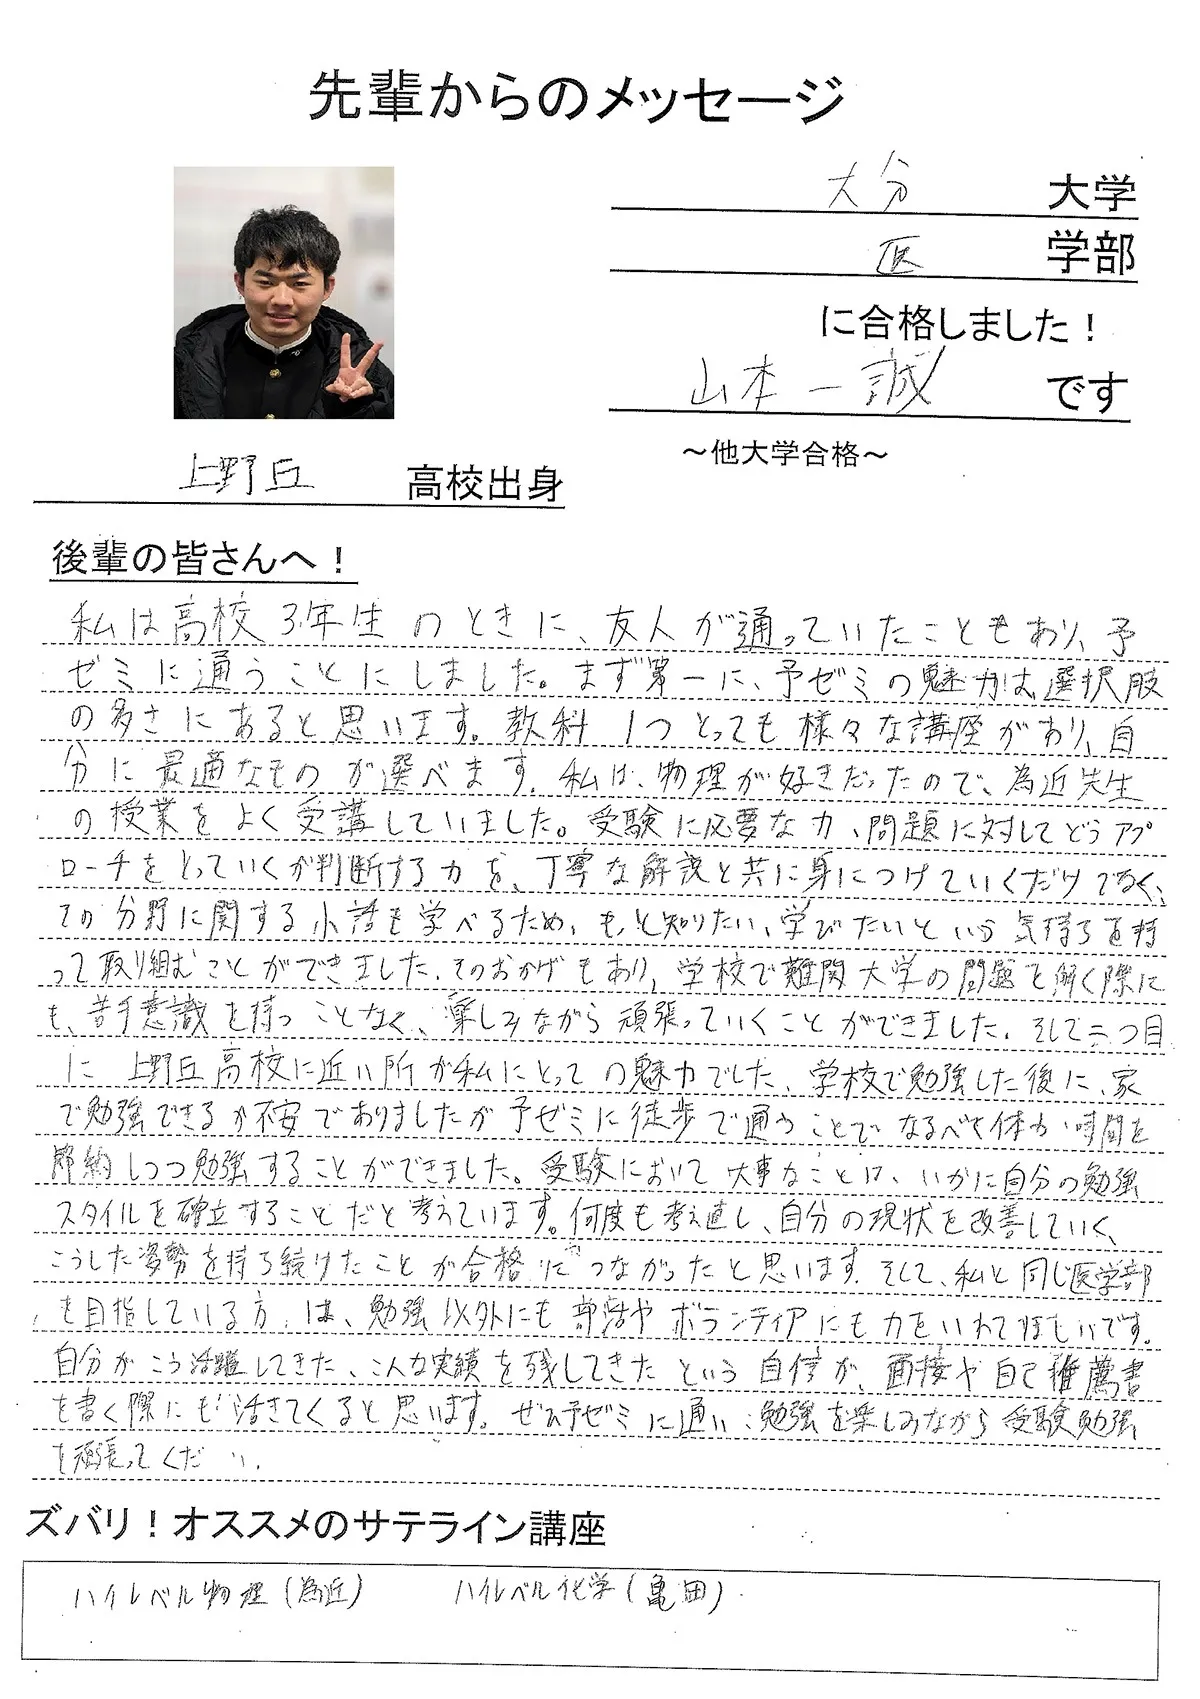 先輩からのメッセージ
大分 大学
医 学部
に合格しました！
山本一誠 です
～他大学合格～
上野丘 高校出身
後輩の皆さんへ！
私は高校3年生のときに、友人が通っていたこともあり、予
ゼミに通うことにしました。まず第一に、予ゼミの魅力は、選択肢
の多さにあると思います。教科1つとっても様々な講座があり、自
分に最適なものが選べます。私は、物理が好きだったので、為近先生
の授業をよく受講していました。受験に必要な力、問題に対してどうアプ
ローチをとっていくか判断する力を、丁寧な解説と共に身につけていくだけでなく、
その分野に関する小話も学べるため、もっと知りたい、学びたいという気持ちを持
って取り組むことができました。そのおかげもあり、学校で難関大学の問題を解く際に
も、苦手意識を持つことなく、楽しみながら頑張っていくことができました。そして二つ目
に上野丘高校に近い所が私にとっての魅力でした。学校で勉強した後に、家
で勉強できるか不安でありましたが予ゼミに徒歩で通うことでなるべく体力、時間を
節約しつつ勉強することができました。受験において大事なことは、いかに自分の勉強
スタイルを確立することだと考えています。何度も考え直し、自分の現状を改善していく、
こうした姿勢を持ち続けたことが合格につながったと思います。そして、私と同じ医学部
を目指している方は、勉強以外にも部活やボランティアにも力をいれてほしいです。
自分がこう活躍してきた、こんな実績を残してきたという自信が、面接や自己推薦書
を書く際にも活きてくると思います。ぜひ予ゼミに通い、勉強を楽しみながら受験勉強
を頑張ってください。
ズバリ！オススメのサテライン講座
ハイレベル物理（為近） ハイレベル化学（亀田）